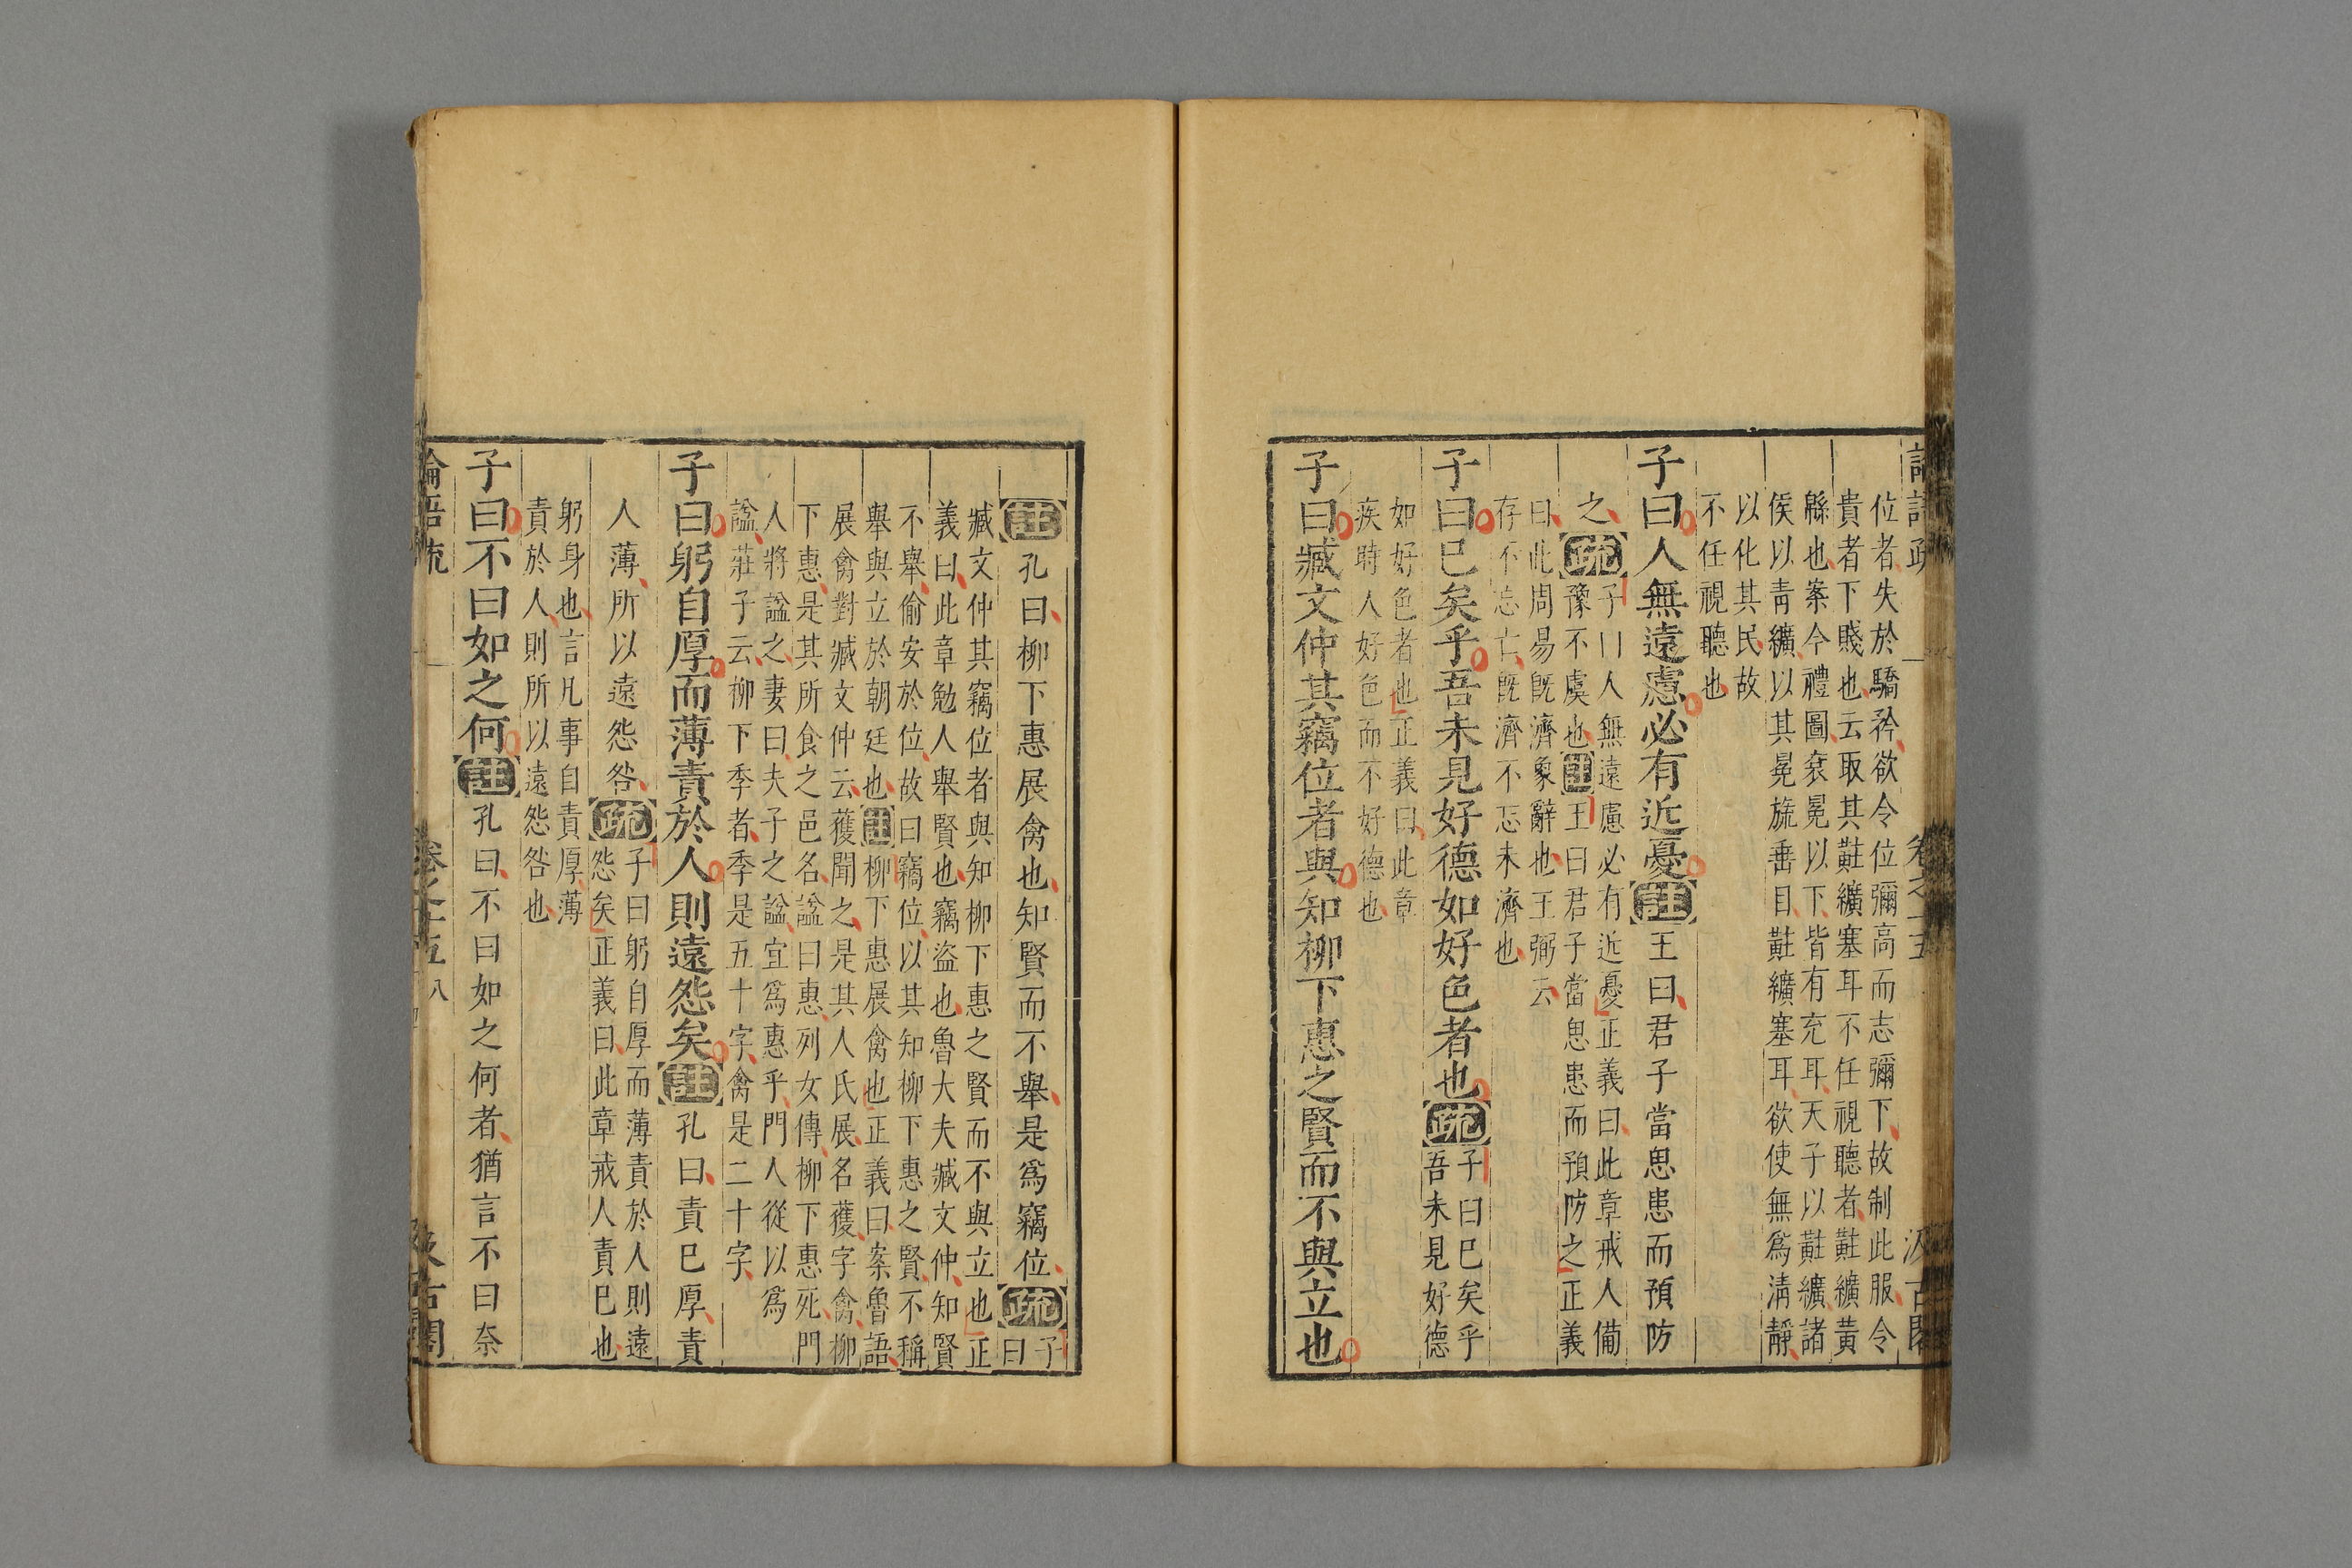 位者失於驕矜欲令位彌高而志彌下故制此服令
貴者下賤也云取其黈纊塞耳不任視聽者黈纊黃
緜也案今禮圖袞冕以下皆有充耳天子以黈纊諸
侯以靑纊以其冕旒垂目黈纊塞耳欲使無爲淸靜
以化其民故
不任視聽也
子曰人無遠慮必有近憂註王曰君子當思患而預防
之疏
子曰人無遠慮必有近憂正義曰此章戒人備
豫不虞也註王曰君子當思患而預防之正義
曰此周易旣濟象辭也王弼云
存不忘亡旣濟不忘未濟也
子曰已矣乎吾未見好德如好色者也疏
子曰已矣乎
吾未見好德
如好色者也正義曰此章
疾時人好色而不好德也
子曰臧文仲其竊位者與知柳下惠之賢而不與立也
註孔曰柳下惠展禽也知賢而不舉是爲竊位疏
子
曰
臧文仲其竊位者與知柳下惠之賢而不與立也正
義曰此章勉人舉賢也竊盜也魯大夫臧文仲知賢
不舉偷安於位故曰竊位以其知柳下惠之賢不稱
舉與立於朝廷也註柳下惠展禽也正義曰案魯語
展禽對臧文仲云獲聞之是其人氏展名獲字禽柳
下惠是其所食之邑名諡曰惠列女傳柳下惠死門
人將諡之妻曰夫子之諡宜爲惠乎門人從以爲
諡莊子云柳下季者季是五十字禽是二十字
子曰躬自厚而薄責於人則遠怨矣註孔曰責已厚責
人薄所以遠怨咎疏
子曰躬自厚而薄責於人則遠
怨矣正義曰此章戒人責已也
躬身也言凡事自責厚薄
責於人則所以遠怨咎也
子曰不曰如之何註孔曰不曰如之何者猶言不曰奈
論語疏 卷之十五 八 汲古閣